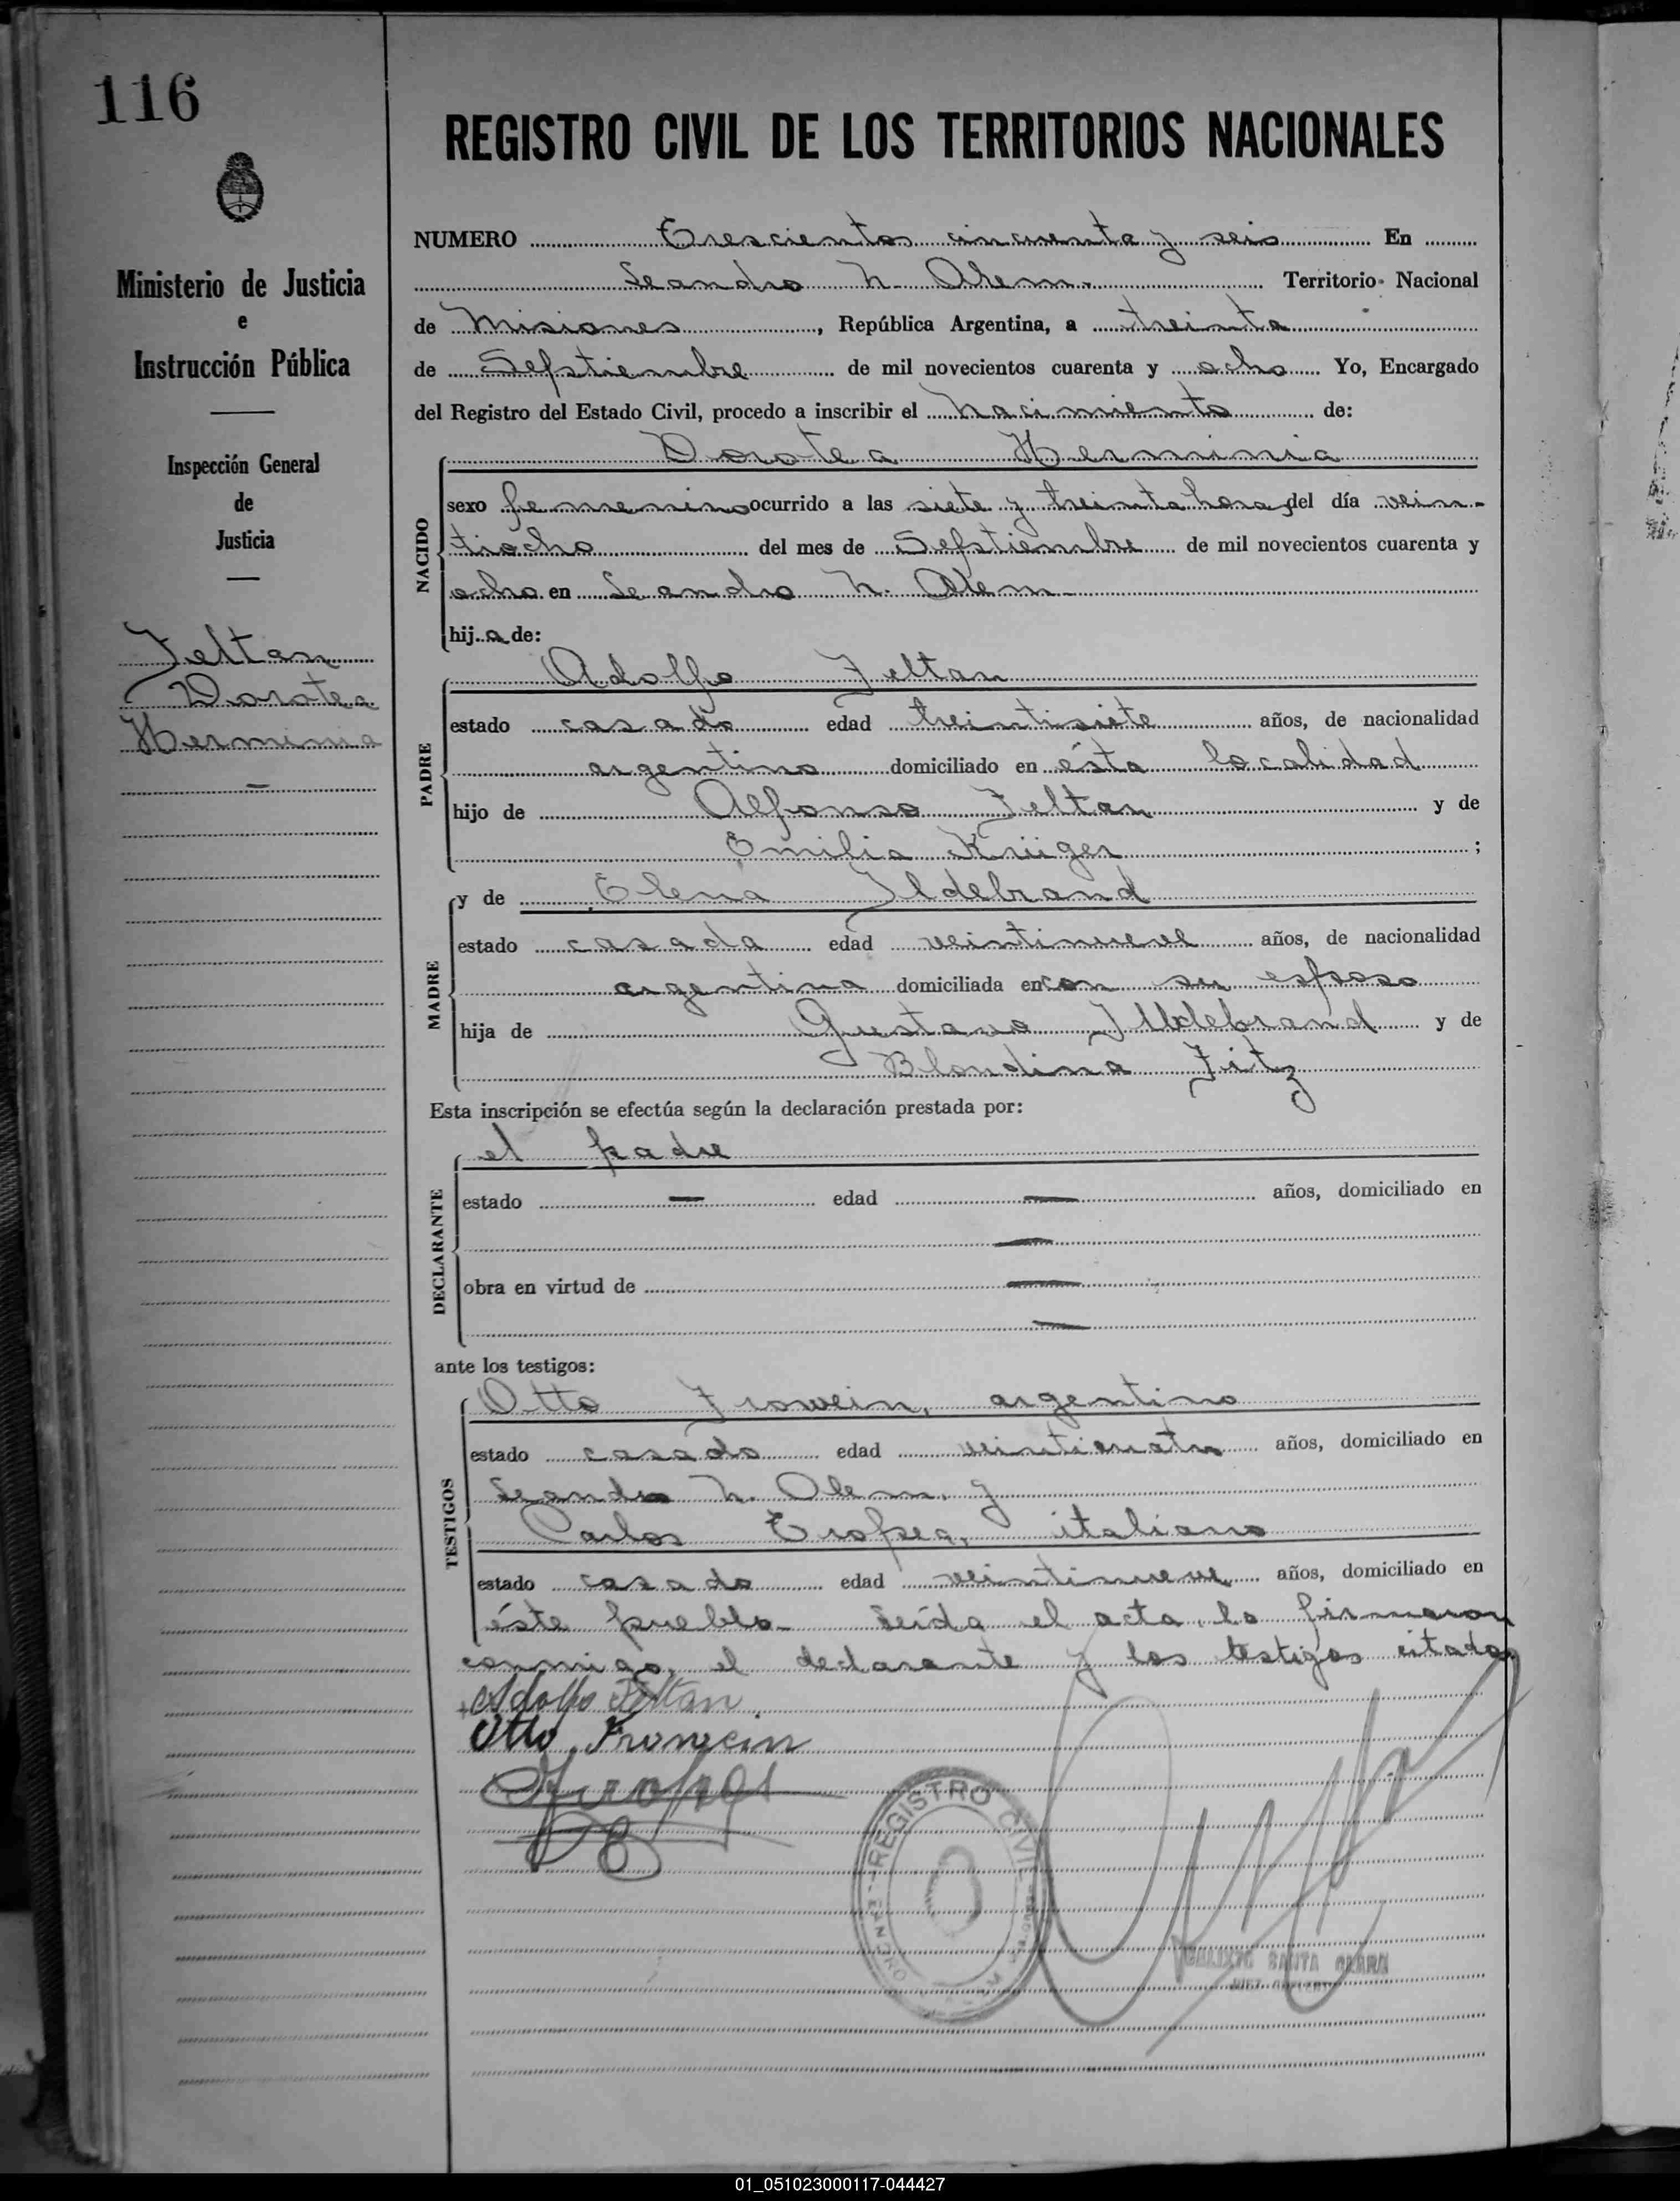 116
REGISTRO CIVIL DE LOS TERRITORIOS NACIONALES
Ministerio de Justicia
e
Instrucción Pública
Inspección General
de
Justicia
Feltan
Dorotea
Herminia
NUMERO Trescientos cincuenta y seis En
Leandro N. Alem. Territorio Nacional
de Misiones, República Argentina, a treinta
de Sepstiembre de mil novecientos cuarenta y ocho Yo, Encargado
del Registro del Estado Civil, procedo a inscribir el nacimiento de:
Dorotea Herminia
NACIDO
sexo femenino ocurrido a las siete y treinta horas del día vein-
tiocho del mes de Sepstiembre de mil novecientos cuarenta y
ocho en Leandro N. Alem
hija de:
Adolfo Feltan
PADRE
estado casado edad treintisiete años, de nacionalidad
argentino domiciliado en ésta localidad
hijo de Alfonso Feltan y de
Emilia Krüger ;
y de Elena Ildebrand
MADRE
estado casada edad veintinueve años, de nacionalidad
argentina domiciliada en con su esposo
hija de Gustavo Ildebrand y de
Blondina Fitz
Esta inscripción se efectúa según la declaración prestada por:
el padre
DECLARANTE
estado — edad — años, domiciliado en
—
obra en virtud de —
—
ante los testigos:
Otto Frowein, argentino
TESTIGOS
estado casado edad veinticuatro años, domiciliado en
Leandro N. Alem. y
Carlos Tropea, italiano
estado casado edad veintinueve años, domiciliado en
éste pueblo- Leída el acta, la firmaron
conmigo, el declarante y los testigos citados
Adolfo Feltan
Otto Frowein
REGISTRO CIVIL
SANTA
01_051023000117-044427